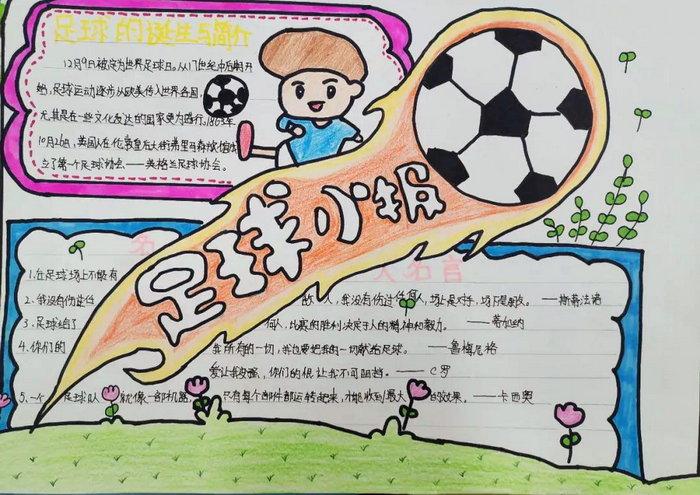 足球的诞生与简介
12月9日被定为世界足球日。从17世纪中后期开
始,足球运动逐步从欧美传入世界各国,
尤其是在一些文化发达的国家更为盛行。1863年
10月26日,英国人在伦敦皇后大街
立了第一个足球协会——英格兰足球协会。
足球小报
名人名言
1.在足球场上不能有
2.我没有伤 敌人,我没有伤过任何人,场上是对手,场下是朋友。——斯蒂法诺
3.足球给了 何人,比赛的胜利决定于人的精神和毅力。——蒂加纳
4.你们的 我所有的一切,我也要把我的一切献给足球。——鲁梅尼格
爱让我坚强,你们的恨让我不可阻挡。——C罗
5.一个 足球队 就像一部机器, 只有每个部件都运转起来,才能收到最大的效果。——卡西奥